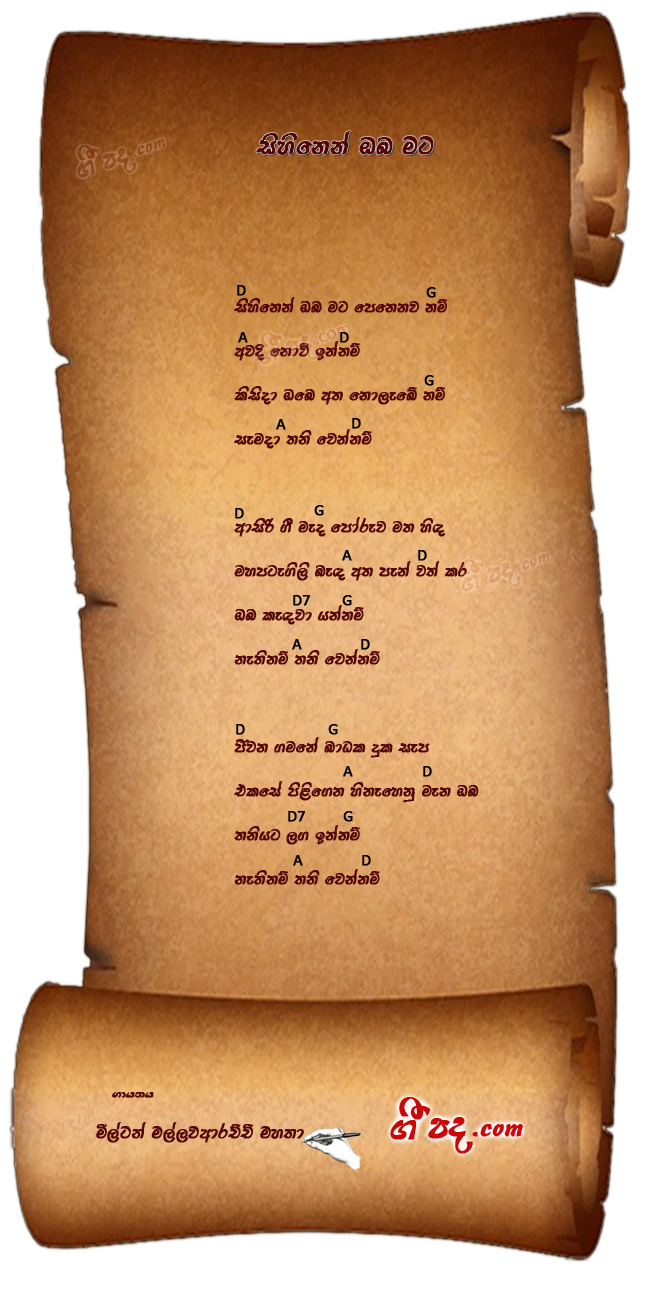 ගී පද.com
සිහිනෙන් ඔබ මට
D G
සිහිනෙන් ඔබ මට පෙනෙනව නම්
A D
අවදි නොවී ඉන්නම්
G
කිසිදා ඔබෙ අත නොලැබේ නම්
A D
සැමදා තනි වෙන්නම්
D G
ආසිරි ගී මැද පෝරුව මත හිඳ
A D
මහපටැඟිලි බැඳ අත පැන් වත් කර
D7 G
ඔබ කැඳවා යන්නම්
A D
නැතිනම් තනි වෙන්නම්
D G
ජීවන ගමනේ බාධක දුක සැප
A D
එකසේ පිළිගෙන හිනැහෙනු මැන ඔබ
D7 G
තනියට ලඟ ඉන්නම්
A D
නැතිනම් තනි වෙන්නම්
ගායනය
මිල්ටන් මල්ලවආරච්චි මහතා
ගී පද.com